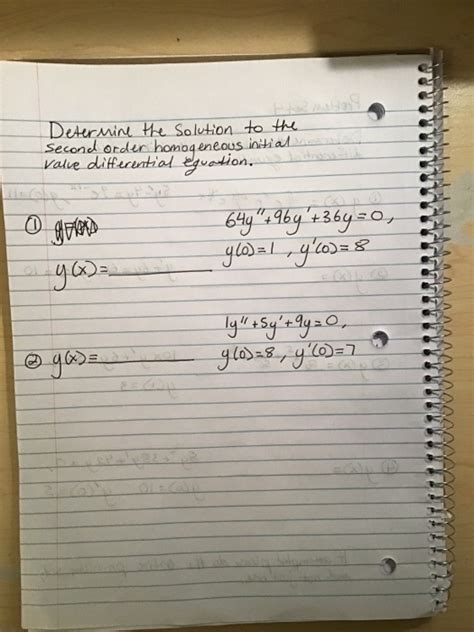 Determine the Solution to the
second order homogeneous initial
value differential equation.
① 64y"+96y'+36y=0,
y(0)=1, y'(0)=8
y(x)=
1y"+5y'+9y=0,
② y(x)=
y(0)=8, y'(0)=7